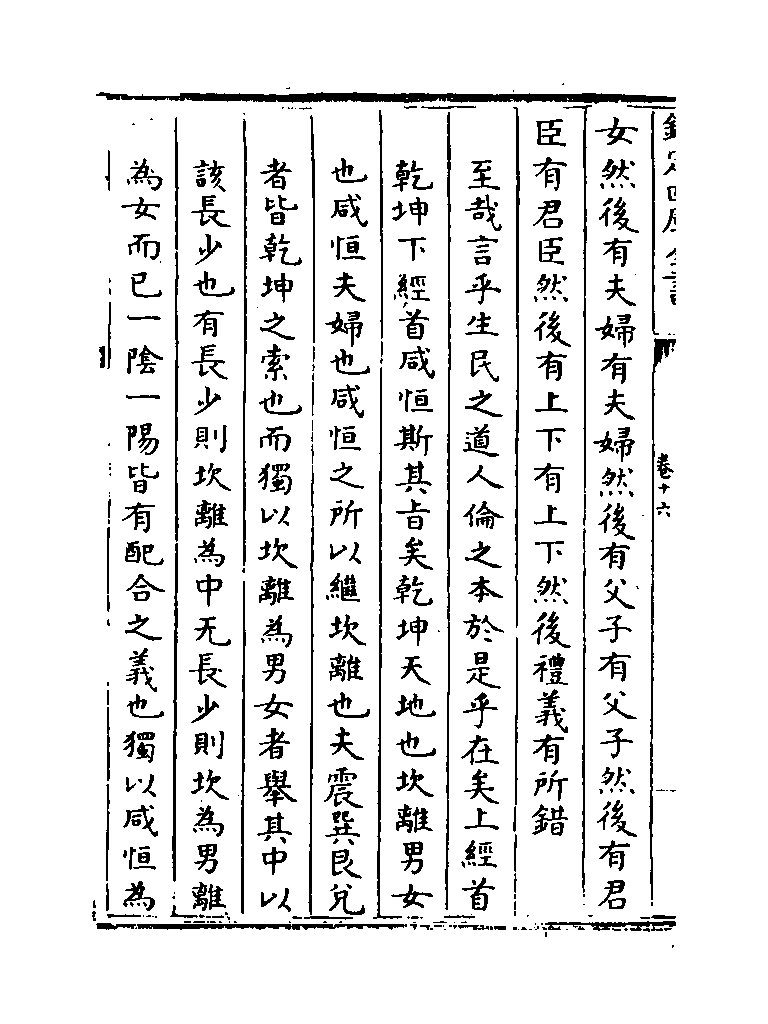 欽定四庫全書
卷十六
女然後有夫婦有夫婦然後有父子有父子然後有君
臣有君臣然後有上下有上下然後禮義有所錯
至哉言乎生民之道人倫之本於是乎在矣上經首
乾坤下經首咸恒斯其旨矣乾坤天地也坎離男女
也咸恒夫婦也咸恒之所以繼坎離也夫震巽艮兌
者皆乾坤之索也而獨以坎離為男女者舉其中以
該長少也有長少則坎離為中无長少則坎為男離
為女而已一陰一陽皆有配合之義也獨以咸恒為